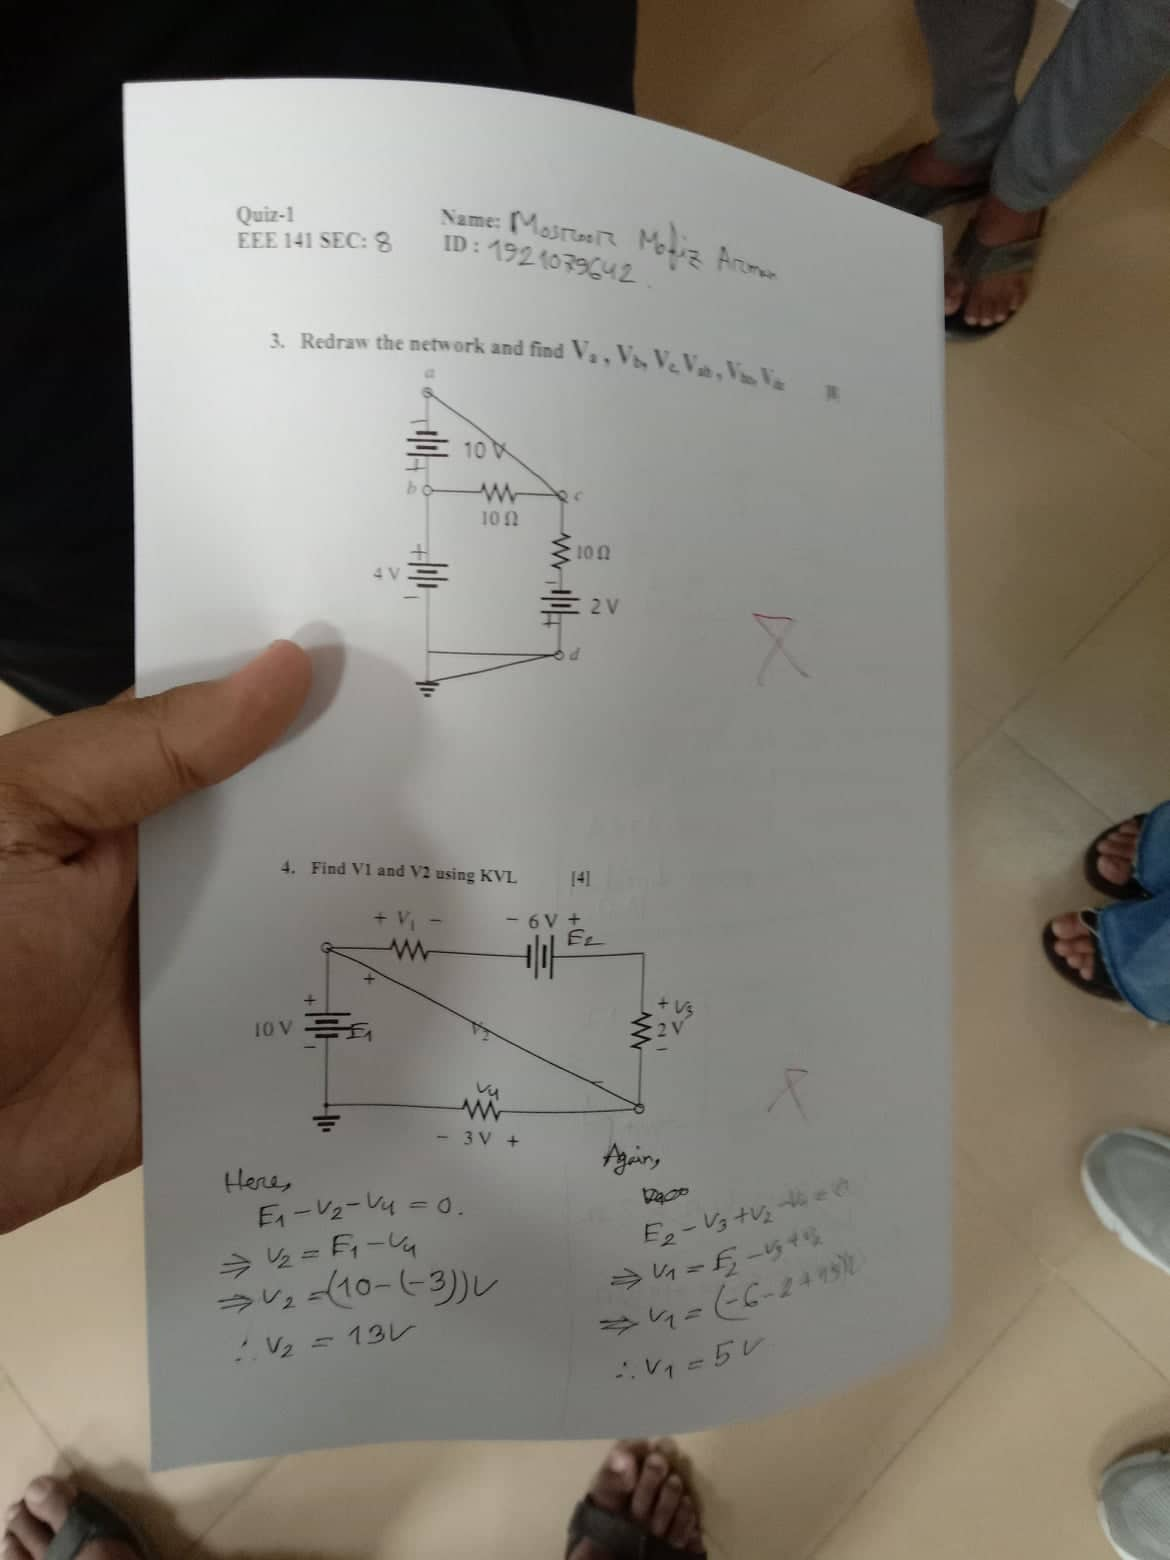 Quiz-1
EEE 141 SEC: 8
Name: Masroor Mofiz Arman
ID : 1921079642
3. Redraw the network and find Va , Vb, Vc, Vab ,
a
-
10 V
+
b
c
10 Ω
+
4 V
-
10 Ω
-
2 V
+
d
4. Find V1 and V2 using KVL [4]
+ V1 -
- 6 V +
E2
+
+
10 V
E1
-
V2
+ V3
2 V
-
-
V4
- 3 V +
Here,
E1 - V2 - V4 = 0.
⇒ V2 = E1 - V4
⇒ V2 = (10-(-3))V
∴ V2 = 13V
Again,
E2 - V3 + V2
⇒ V1 = E2 - V3 + V2
⇒ V1 = (-6-2+13)V
∴ V1 = 5V